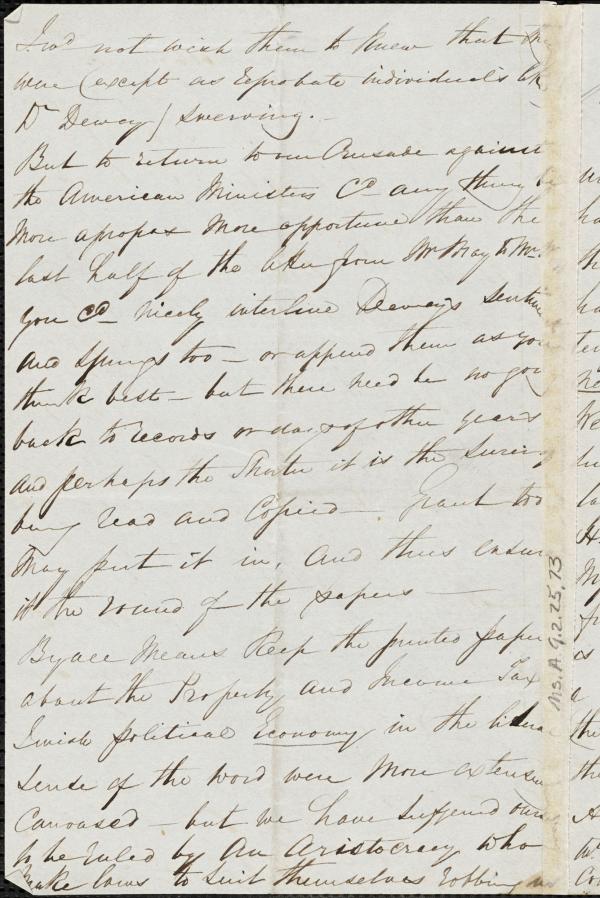 I wod not wish them to know that
were (except as reprobate individuals like
Dr Dewey) swerving. -
But to return to our Crusade against
the American Ministers Cd any thing be
More apropos More opportune than the
last half of the letter from Mr May to Mr
you cd nicely interline Dewey's
and Spring's too - or append them as you
think best - but there need be no going
back to records or days of other years
and perhaps the Shorter it is the Surer
being read and Copied - Grant too
May put it in, And thus ensure
it the round of the papers -
By all Means Keep the printed paper
about the Property and Income Tax
I wish political Economy in the literal
sense of the word were More
Canvassed - but we have suffered
to be ruled by An Aristocracy who
Make laws to Suit themselves robbing
Ms.A.9.2.25,73